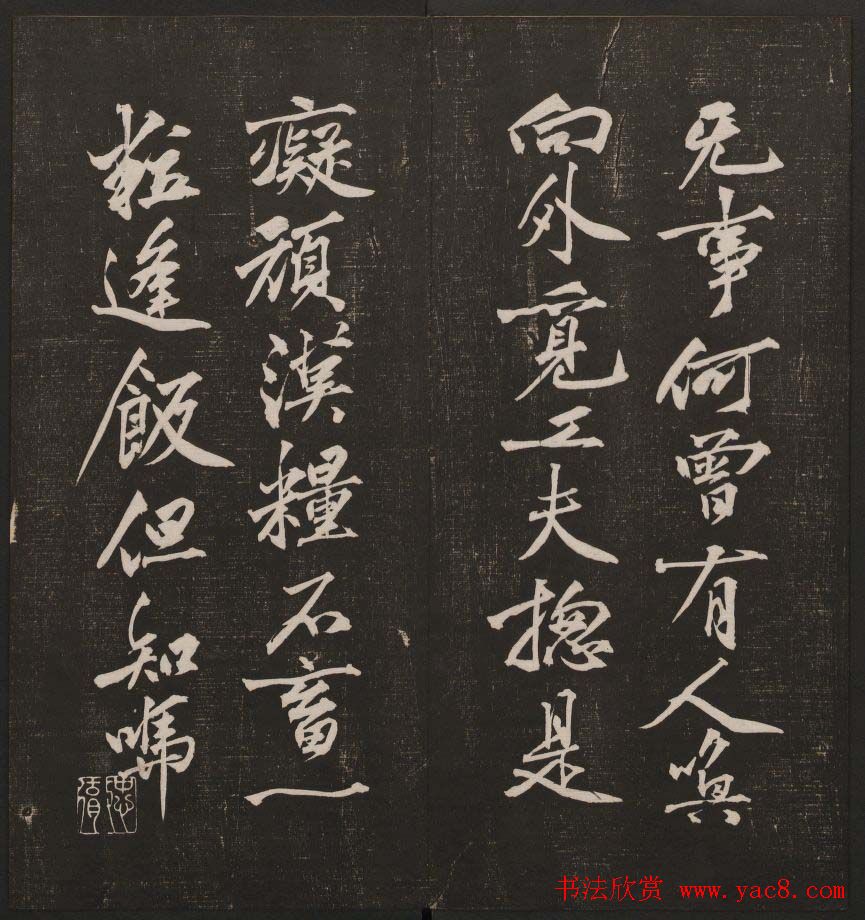 无事何曾有人喚
向外覓工夫揔是
癡頑漢糧不畜一
粒逢飯但知嗎
书法欣赏 www.yac8.com